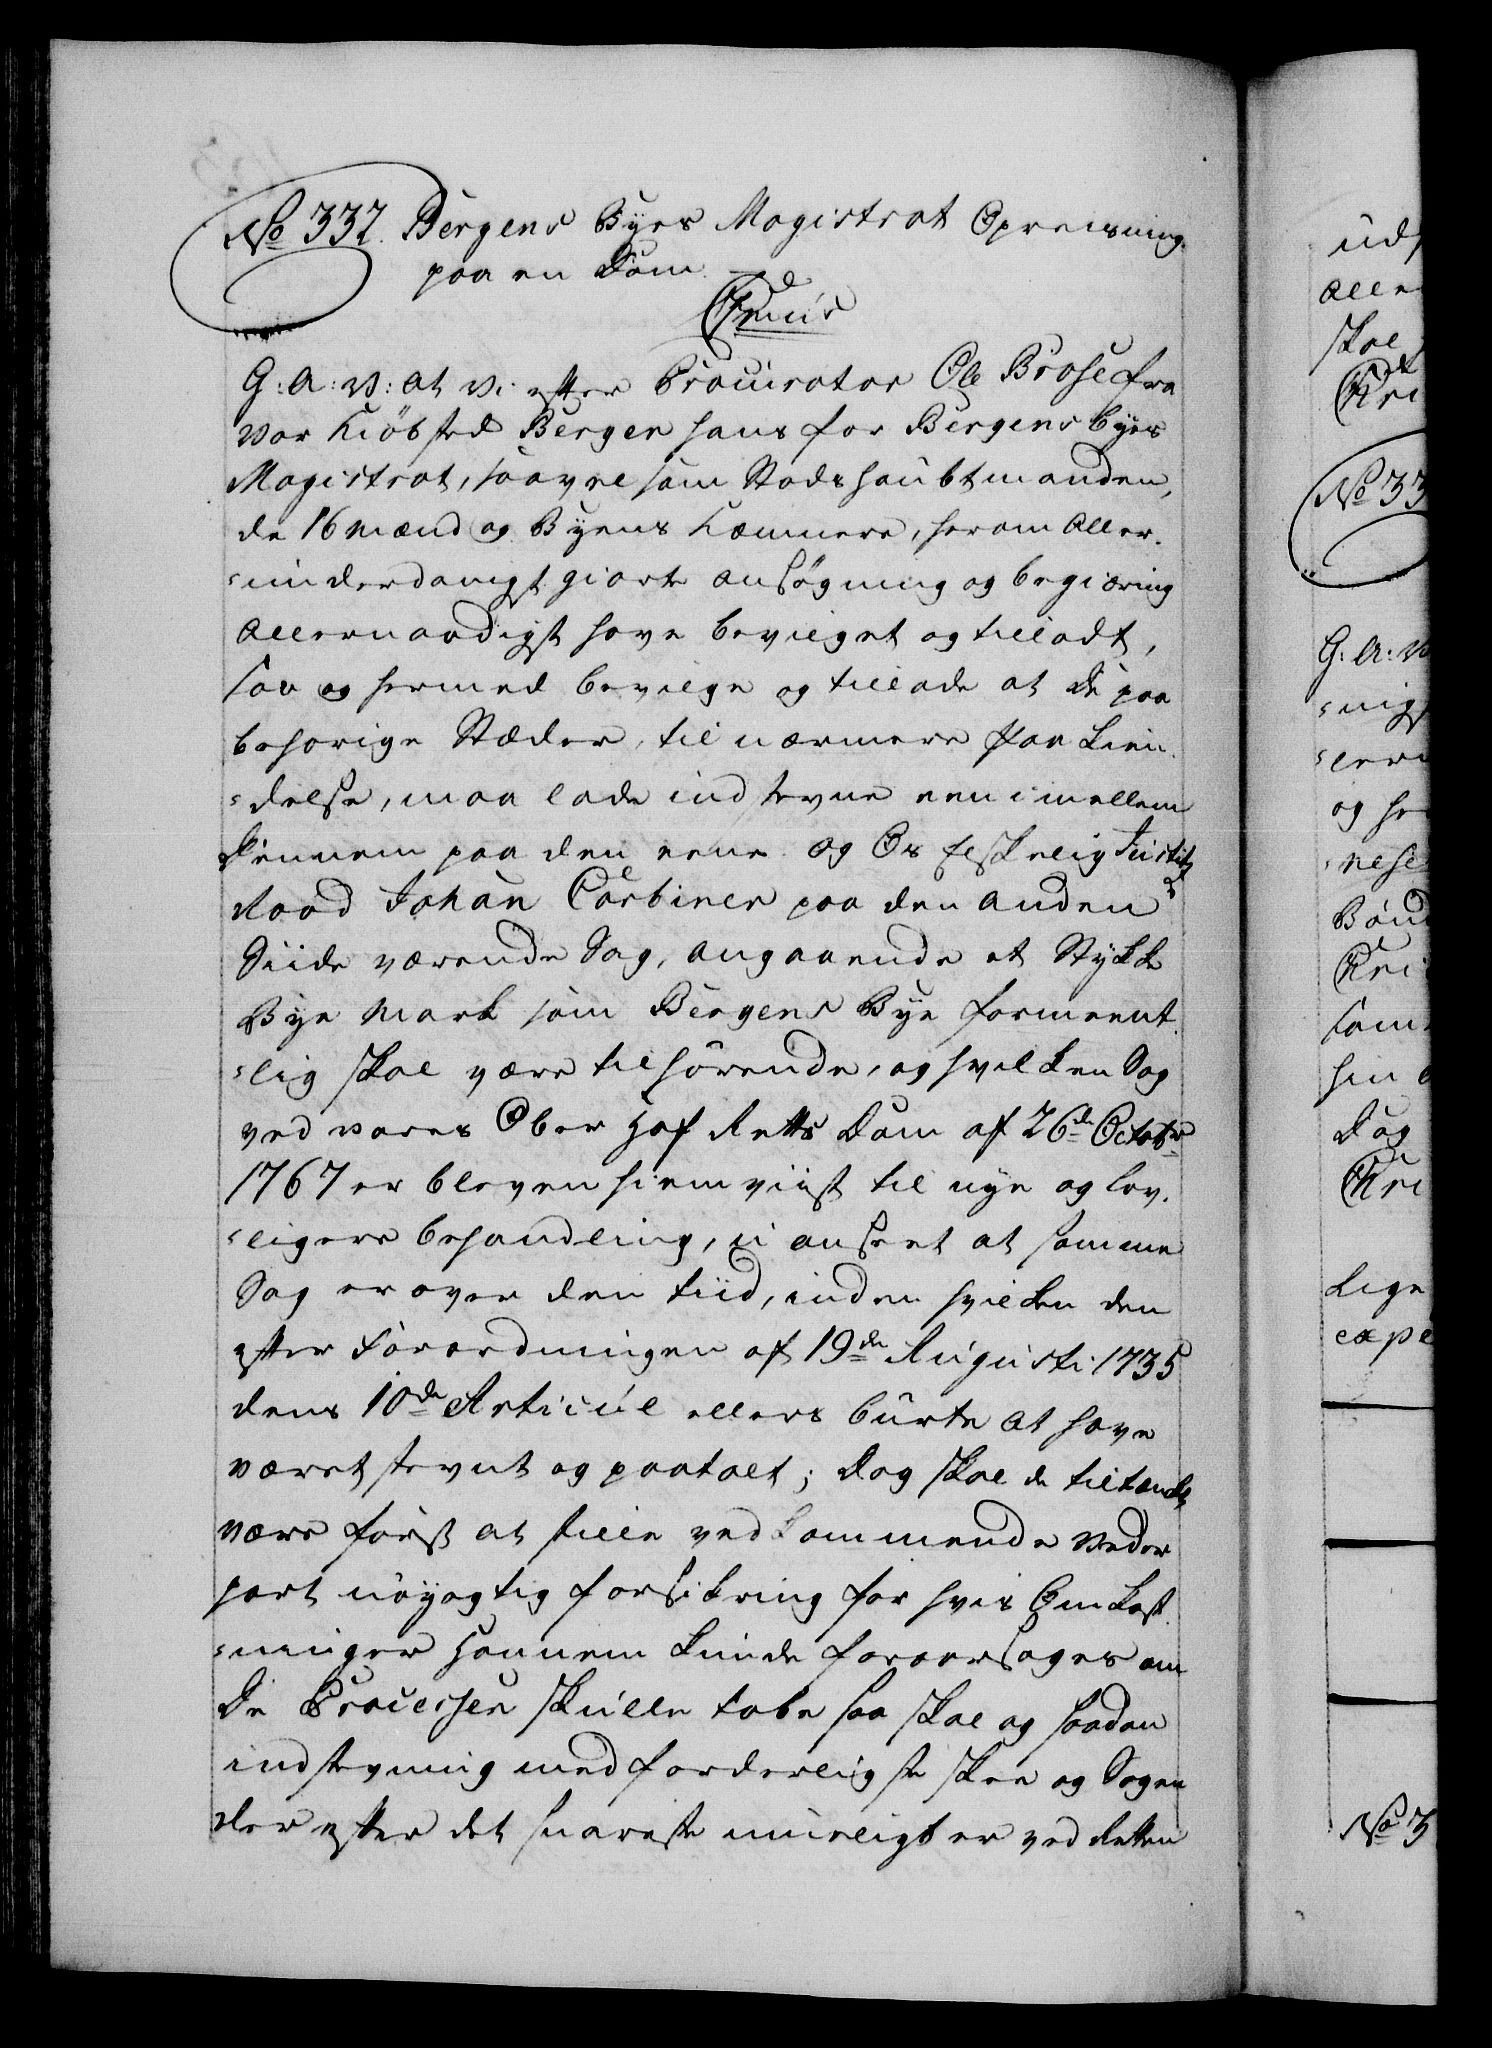 No 332. Bergens Byes Magistrat Opreisning
paa en Dom.
Cr̃: 7mus
G: A: V: at Vi efter Procurator Ole Brose fra
vor Kiöbsted Bergen hans for Bergens Byes
Magistrat, saavel som Stadshaubtmanden,
de 16 Mænd og Byens Kæmnere, herom Aller-
=underdanigst giorte ansøgning og begiæring
Allernaadigst have bevilget og tilladt,
saa og hermed bevilge og tillade at De paa
behørige Stæder, til nærmere paakien-
=delse, maa lade indstevne een imellem
Dennem paa den eene og Os Elskelig Justitz
Raad Johan Garbiner paa den anden
Siide værende Sag, angaaende et Stykke
Bye Mark som Bergens Bye forment-
=lig skal være tilhørende, og hvilken Sag
ved vores Ober Hof Retts Dom af 26de Octobr
1767 er bleven hiemviist til nye og lov-
=ligere behandling, uanseet at samme
Sag er over den tiid, inden hvilken den
efter Forordningen af 19de Augusti 1735
dens 10de Articul ellers burte at have
været stevnt og paatalt; Dog skal de tiltænkt
være først at stille vedkommende Veder
part nøyagtig forsikring for hvis Omkost-
=ninger Hannem kunde foraarsages om
De Processen skulle tabe saa skal og saadan
indstevning med forderligste skee og Sagen
der efter det snareste mueligt er ved Retten